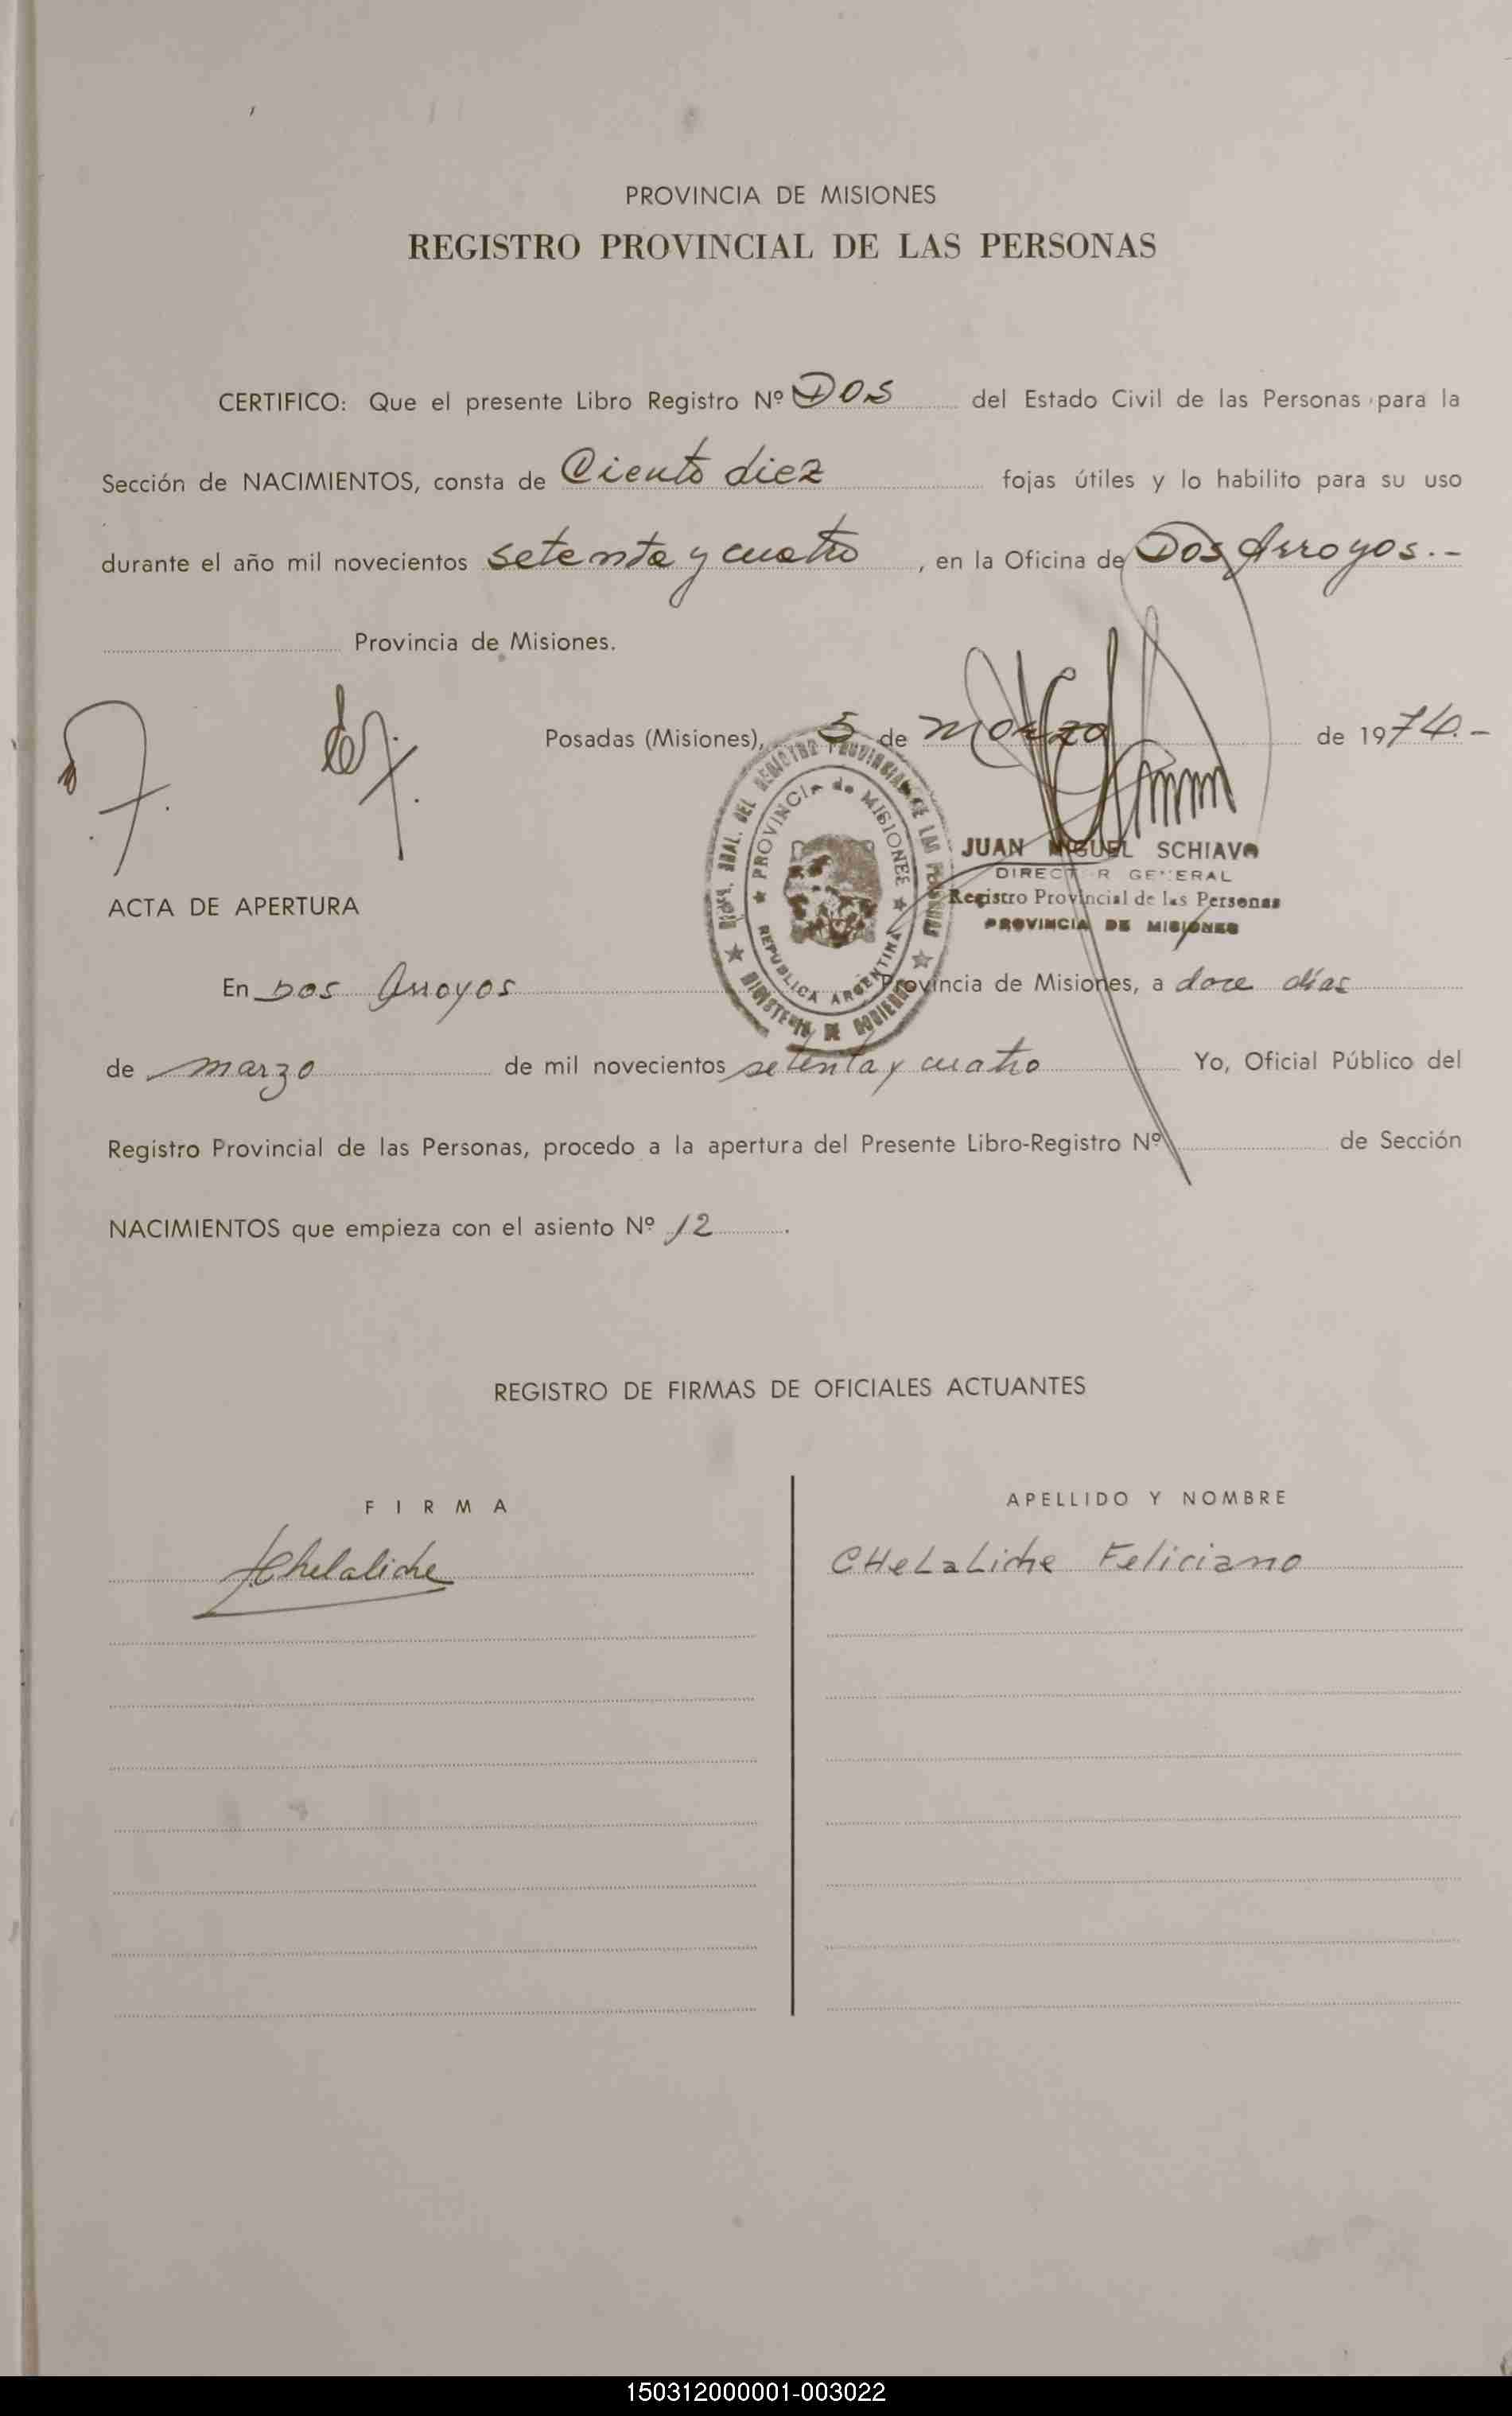 PROVINCIA DE MISIONES
REGISTRO PROVINCIAL DE LAS PERSONAS
CERTIFICO: Que el presente Libro Registro Nº Dos del Estado Civil de las Personas para la
Sección de NACIMIENTOS, consta de Ciento diez fojas útiles y lo habilito para su uso
durante el año mil novecientos setenta y cuatro, en la Oficina de Dos Arroyos.-
Provincia de Misiones.
Posadas (Misiones), 5 de marzo de 1974.-
PROVINCIA de MISIONES
REPUBLICA ARGENTINA
JUAN MIGUEL SCHIAVO
DIRECTOR GENERAL
Registro Provincial de las Personas
PROVINCIA DE MISIONES
ACTA DE APERTURA
En Dos Arroyos Provincia de Misiones, a doce días
de marzo de mil novecientos setenta y cuatro Yo, Oficial Público del
Registro Provincial de las Personas, procedo a la apertura del Presente Libro-Registro Nº de Sección
NACIMIENTOS que empieza con el asiento Nº 12.
REGISTRO DE FIRMAS DE OFICIALES ACTUANTES
FIRMA
APELLIDO Y NOMBRE
Chelaliche
CHeLaLiche Feliciano
150312000001-003022